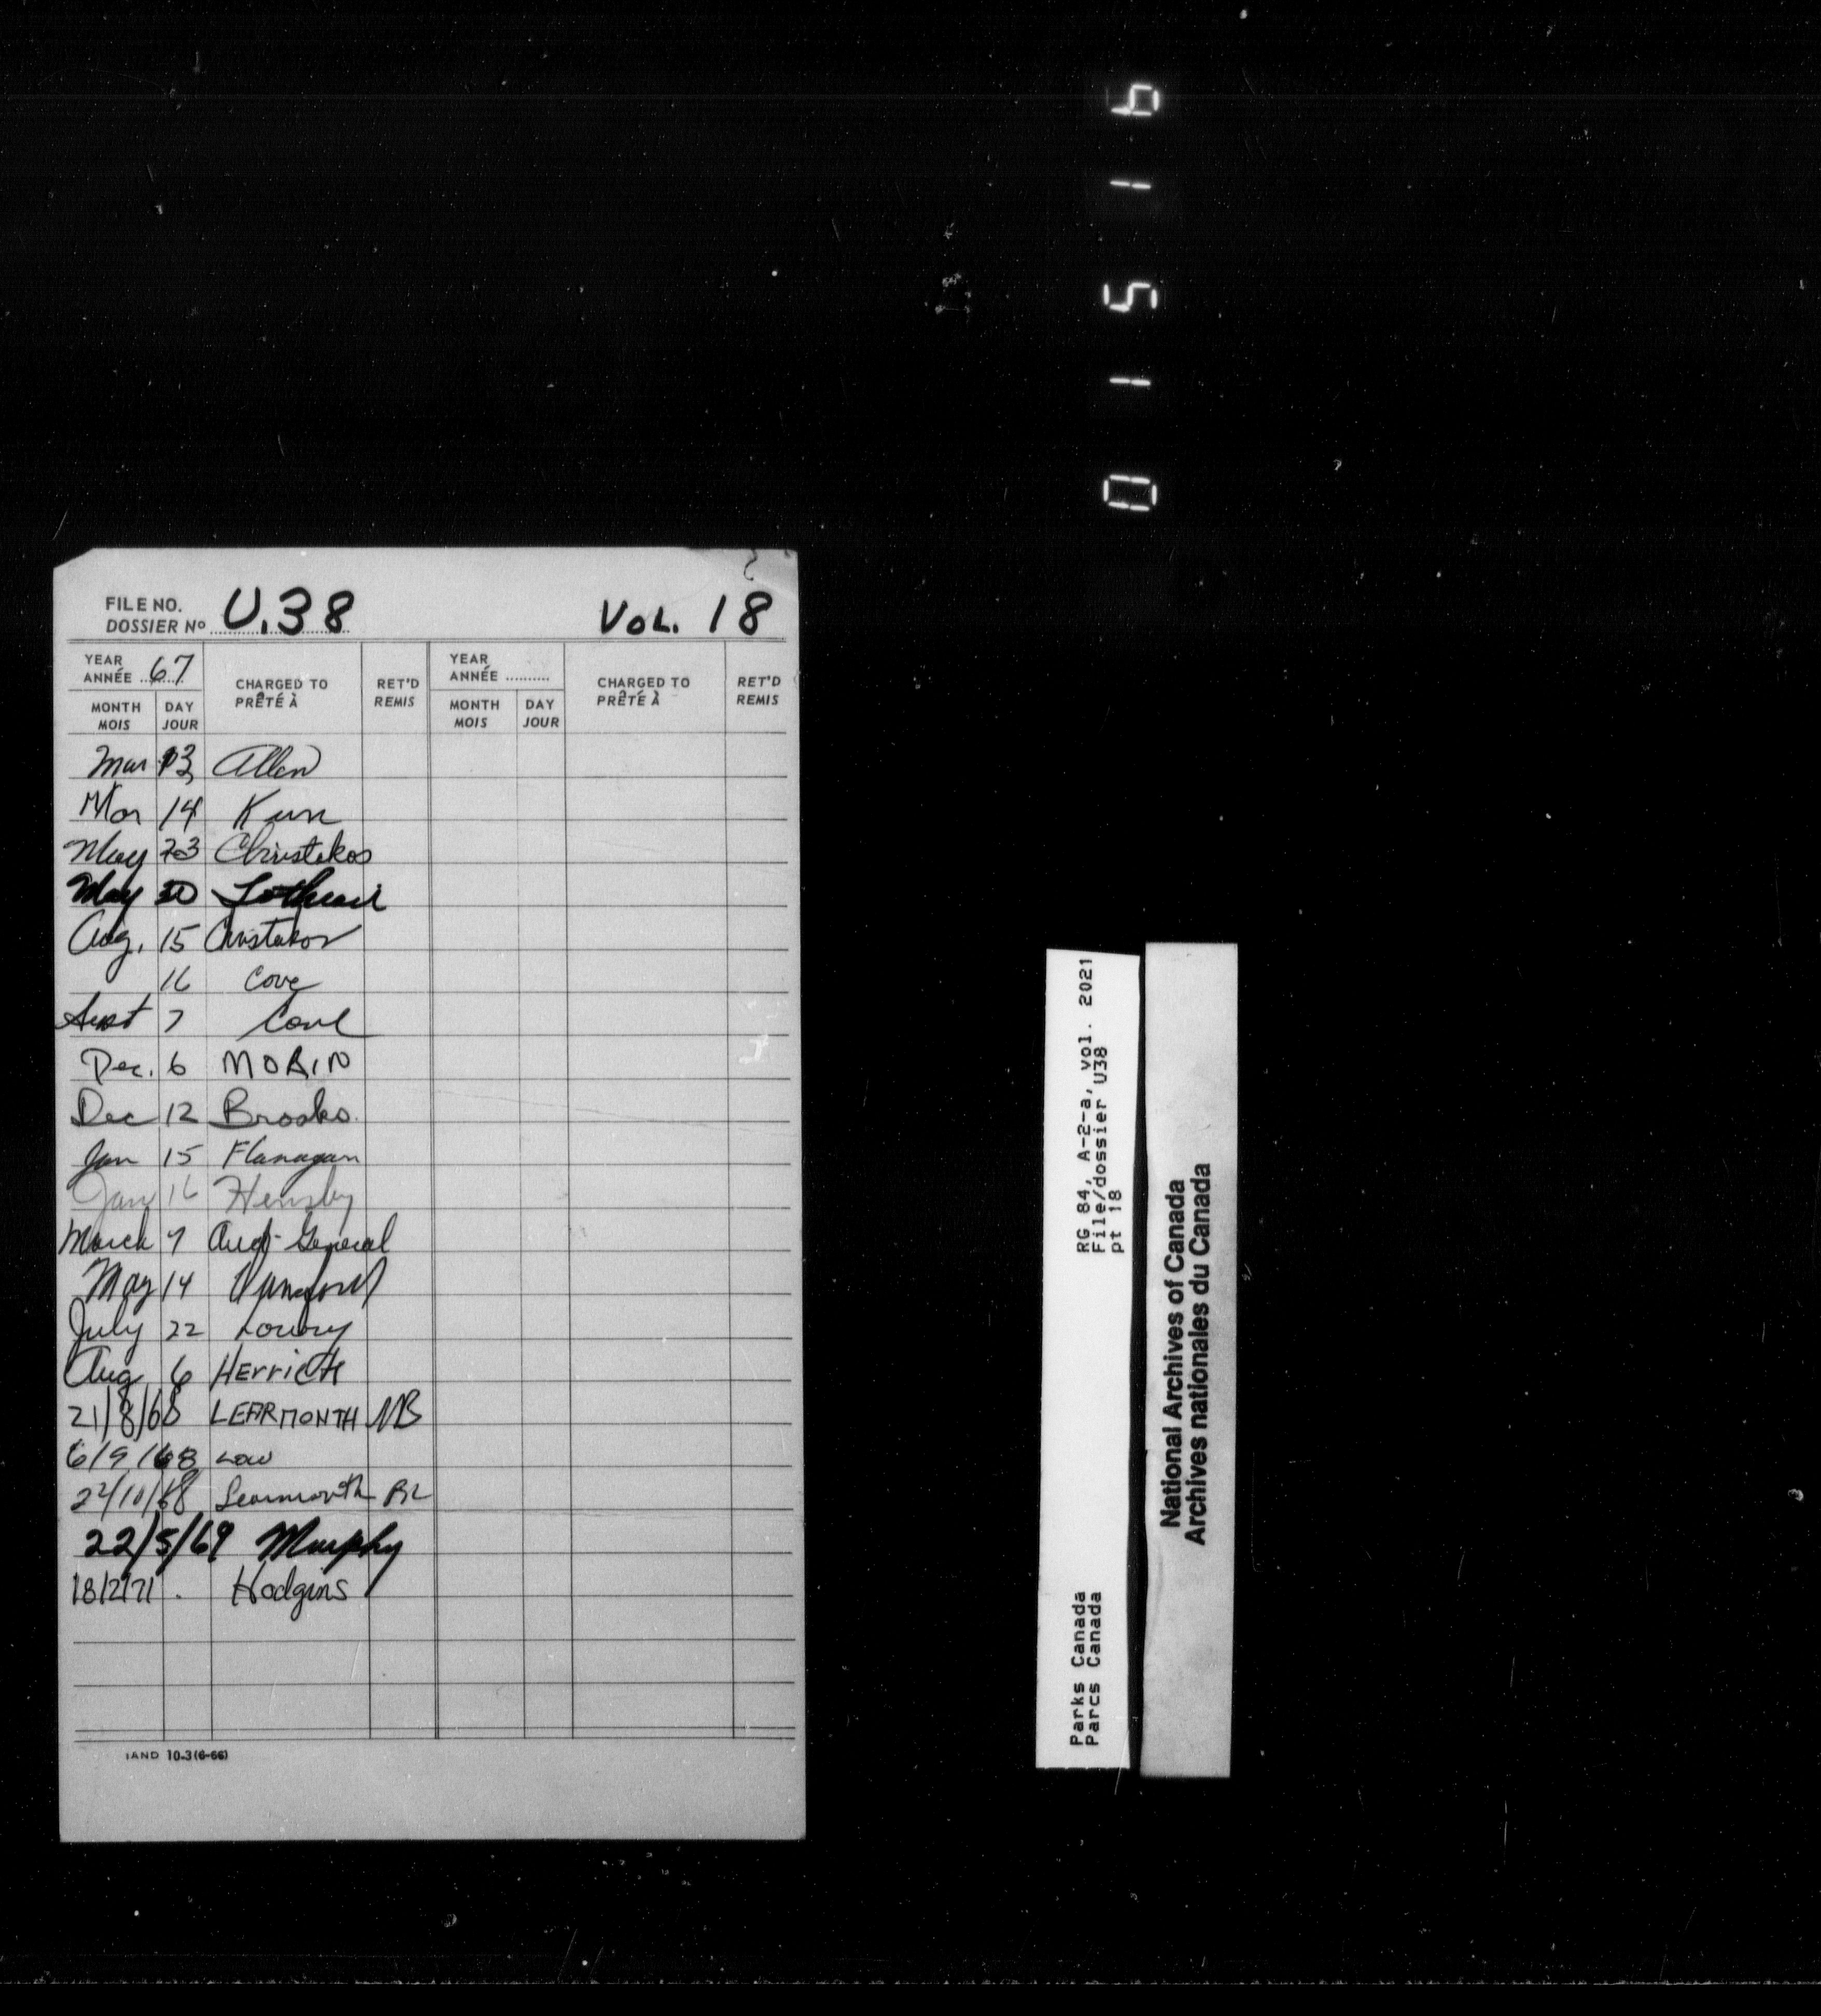 FILE NO.
DOSSIER Nº U.38 VOL. 18
YEAR
ANNÉE 67
CHARGED TO
PRÊTÉ À
RET'D
REMIS
MONTH
MOIS
DAY
JOUR
YEAR
ANNÉE
CHARGED TO
PRÊTÉ À
RET'D
REMIS
MONTH
MOIS
DAY
JOUR
Mar 13 Allen
Mar 14
May 23 Christakos
May 30
Aug. 15 Christakos
16 Cove
Sept 7
Dec. 6 MORIN
Dec 12 Brooks
Jan 15 Flanagan
Jan 16 Hensby
March 7 Aud-General
May 14
July 22 Lowry
Aug 6 HErricK
21/8/68 LEARMONTH
6/9/68 Low
22/10/68 Learmonth
22/5/69 Murphy
18/2/71 . Hodgins
IAND 10-3(6-66)
01516
RG 84, A-2-a, vol. 2021
File/dossier U38
pt 18
Parks Canada
Parcs Canada
National Archives of Canada
Archives nationales du Canada